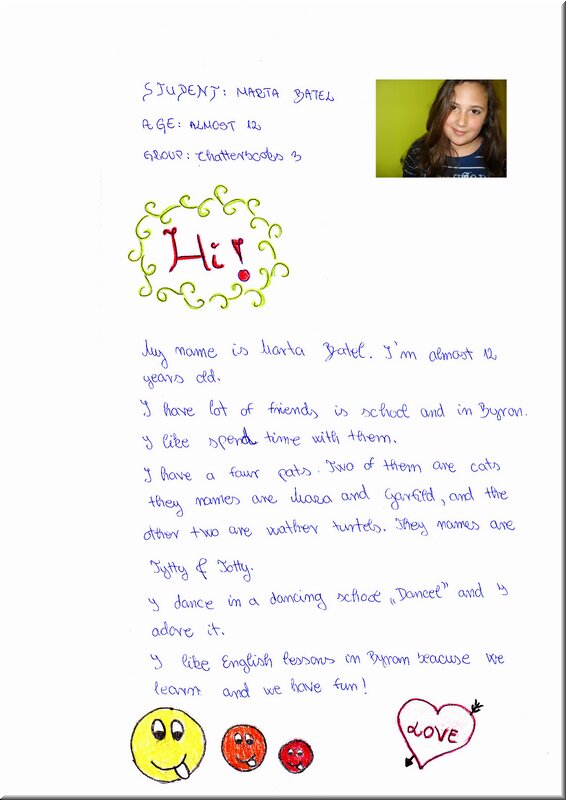 STUDENT: MARTA BATEL
AGE: ALMOST 12
GROUP: Chatterbooks 3
Hi!
My name is Marta Batel. I'm almost 12
years old.
I have lot of friends is school and in Byron.
I like spend time with them.
I have a faur pats. Two of them are cats
they names are Mara and Garfild, and the
other two are wather turtels. They names are
Tytty & Totty.
I dance in a dancing school „Dancel” and I
adore it.
I like English lessons in Byron beacuse we
learn and we have fun!
LOVE